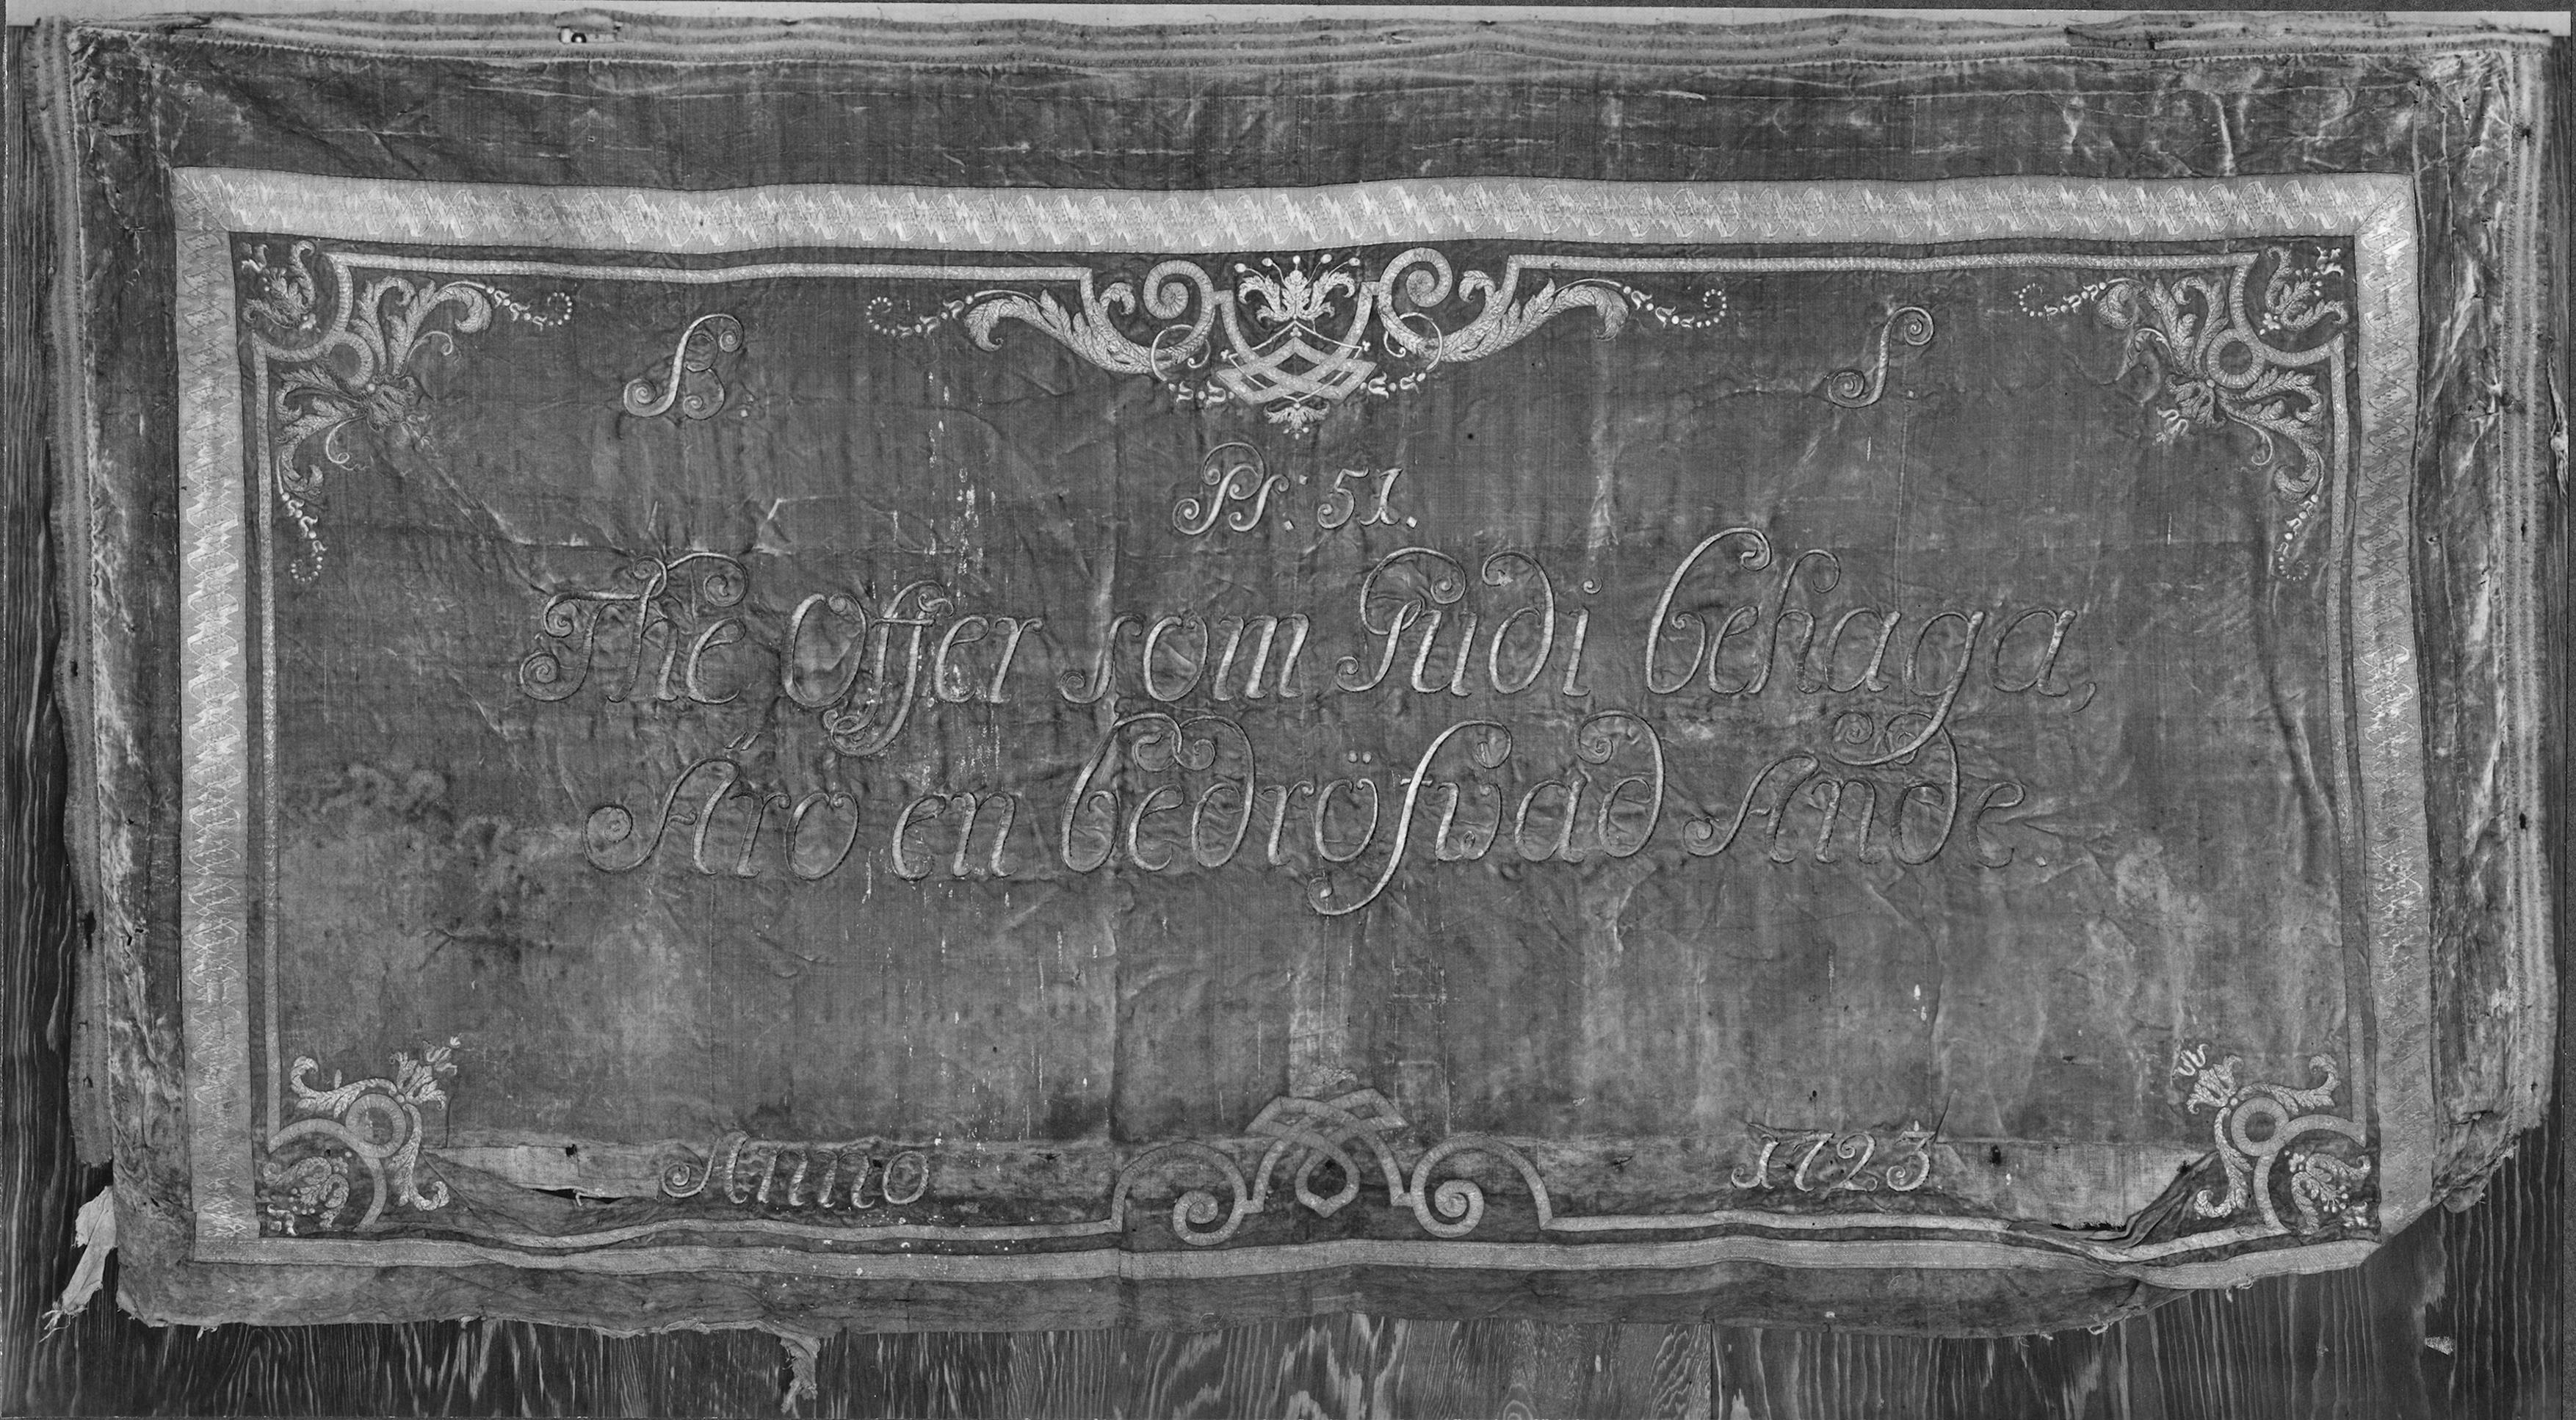 B. S.
Ps: 51.
The Offer som Gudi behaga,
Äro en bedröfwad Ande.
Anno 1723